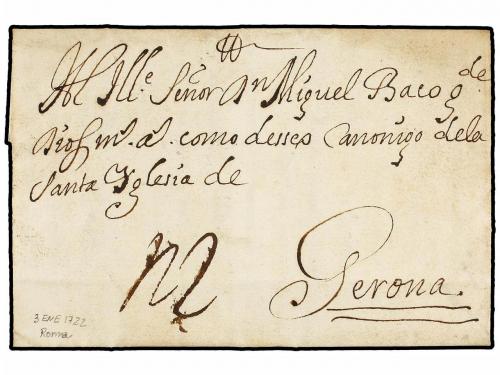 Al Ille. Señor Dn Miguel Baco gde
Dios ms. as. como desseo Canonigo dela
Santa Yglesia de
Gerona.
3 ENE 1722
Roma